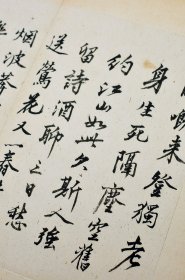 喚来登獨老
身生死隔塵空舊
約江山如此久斯人強
留詩酒聊三日愁
送鶯花又一春
烟波